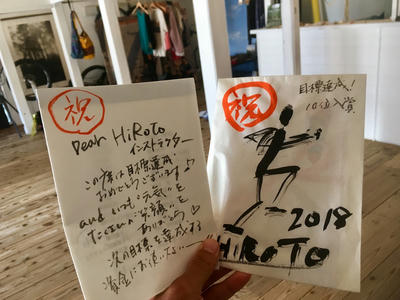 祝
Dear HiRoTo
インストラクター
この度は目標達成
おめでとうございます♪
and いつも"元気"と
たくさん"笑顔"を
ありがとう♪
次の目標を達成する
資金にお使いなさいー
祝
目標達成!
10位入賞
2018
HiRoTo